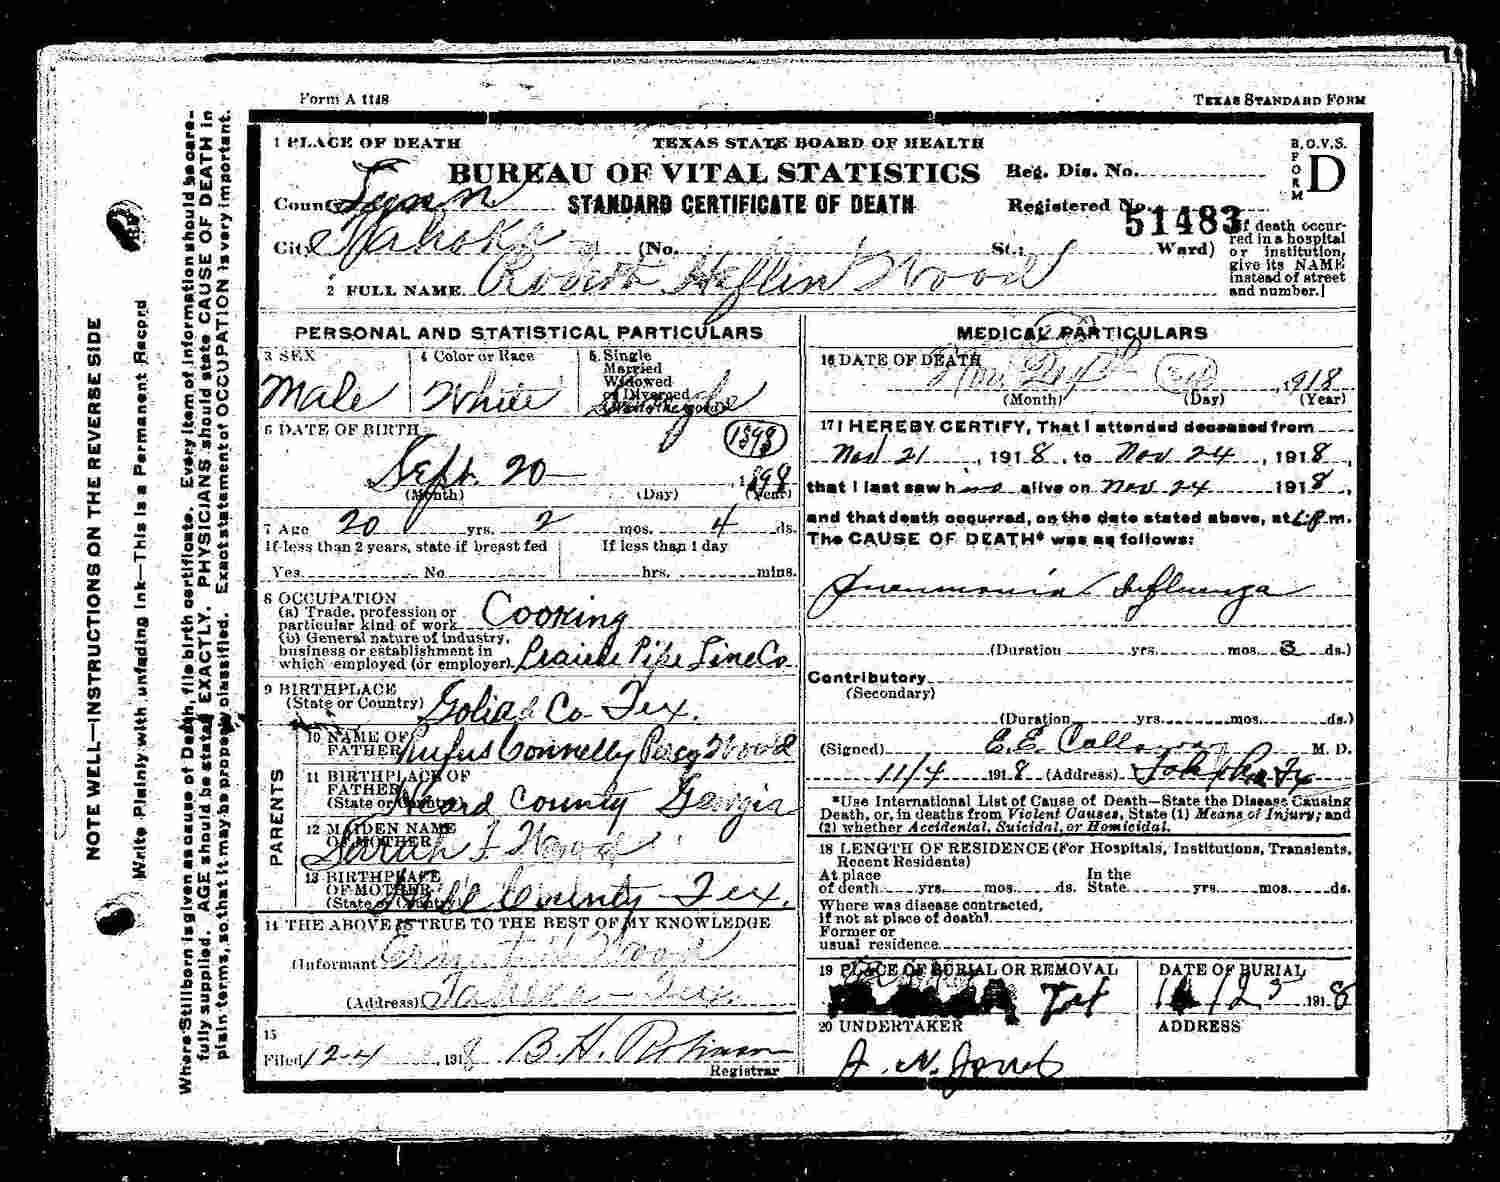 Form A 1148
TEXAS STANDARD FORM
1 PLACE OF DEATH
TEXAS STATE BOARD OF HEALTH
BUREAU OF VITAL STATISTICS
STANDARD CERTIFICATE OF DEATH
Reg. Dis. No.
B.O.V.S.
FORM D
County Lynn
Registered No. 51483
City Tahoka (No. St.; Ward)
If death occur-
red in a hospital
or institution,
give its NAME
instead of street
and number.]
2 FULL NAME Robert Heflin Wood
PERSONAL AND STATISTICAL PARTICULARS
3 SEX
Male
4 Color or Race
White
5 Single
Married
Widowed
or Divorced
(Write the word)
Single
6 DATE OF BIRTH
1898
Sept. 20 1898
(Month) (Day) (Year)
7 Age 20 yrs. 2 mos. 4 ds.
If less than 2 years, state if breast fed
Yes No
If less than 1 day
hrs. mins.
8 OCCUPATION
(a) Trade, profession or
particular kind of work Cooking
(b) General nature of industry,
business or establishment in
which employed (or employer) Prairie Pipe Line Co
9 BIRTHPLACE
(State or Country) Goliad Co Tex.
PARENTS
10 NAME OF
FATHER Rufus Connelly Percy Wood
11 BIRTHPLACE OF
FATHER
(State or Country) Heard County Georgia
12 MAIDEN NAME
OF MOTHER Sarah F Wood
13 BIRTHPLACE
OF MOTHER
(State or Country) County Tex.
14 THE ABOVE IS TRUE TO THE BEST OF MY KNOWLEDGE
(Informant Wood
(Address) Tahoka - Tex.
15
Filed 12-4 1918 B. H. Robinson
Registrar
MEDICAL PARTICULARS
16 DATE OF DEATH
Nov. 24th 1918
(Month) (Day) (Year)
17 I HEREBY CERTIFY, That I attended deceased from
Nov 21, 1918, to Nov 24, 1918,
that I last saw h alive on Nov 24 1918,
and that death occurred, on the date stated above, at m.
The CAUSE OF DEATH* was as follows:
Pneumonia Influenza
(Duration yrs. mos. 3 ds.)
Contributory
(Secondary)
(Duration yrs. mos. ds.)
(Signed) E.E. Callaway M. D.
11/4 1918 (Address)
*Use International List of Cause of Death—State the Disease Causing
Death, or, in deaths from Violent Causes, State (1) Means of Injury; and
(2) whether Accidental, Suicidal, or Homicidal.
18 LENGTH OF RESIDENCE (For Hospitals, Institutions, Transients,
Recent Residents)
At place
of death yrs. mos. ds.
In the
State yrs. mos. ds.
Where was disease contracted,
if not at place of death?
Former or
usual residence
19 PLACE OF BURIAL OR REMOVAL
Tex
DATE OF BURIAL
11/25 1918
20 UNDERTAKER
ADDRESS
NOTE WELL—INSTRUCTIONS ON THE REVERSE SIDE
Write Plainly with unfading Ink—This is a Permanent Record
Where Stillborn is given as cause of Death, file birth certificate. Every item of information should be care-
fully supplied. AGE should be stated EXACTLY. PHYSICIANS should state CAUSE OF DEATH in
plain terms, so that it may be properly classified. Exact statement of OCCUPATION is very important.